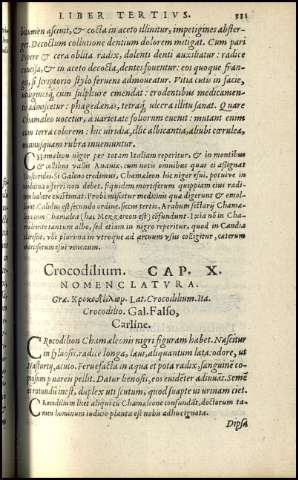 LIBER TERTIVS. 331
bitumen ascint, & cocta in aceto illinitur, impetigines abster-
get. Decoctum collutione dentium dolorem mitigat. Cum pari
Pipere & cera oblita radix, dolenti denti auxiliatur: radice
& in aceto decocta, dentes fouentur: eos quoque fran-
git, si scriptorio stylo feruens admoueatur. Vitia cutis in facie,
cum sulphure emendat: erodentibus medicamen-
to admiscetur: phagedænas, tetraq; ulcera illitu sanat. Quare
Chamæleo uocetur, a uarietate foliorum euenit: mutant enim
cum terra colorem: hic uiridia, illic albicantia, alibi cœrulea,
nonnusquam rubra inueniuntur.
Chamæleon niger per totam Italiam reperitur, & in montibus
uallis Ananiæ, cum notis omnibus quas ei assignat
Dioscorides. Si Galeno credimus, Chamæleon hic niger
sumi non debet, siquidem mortiferum quippiam eius radi-
cem habere existimat. Probè miscetur medicinis quæ digerunt &
Calidus est secundo ordine, siccus tertio. Arabum sectatij Chamæ-
leontem Chamælea (hæc Mezareon est) cōfundunt. Ixia nō in Cha-
mæleonte tantum albo, sed etiam in nigro reperitur, quod in Candia
plurima in utroque ad arcum usus colligitur, caterum
uocatum.
Crocodilium. CAP. X.
NOMENCLATVRA.
Græ. Κροκοδείλιον. Lat. Crocodilium. Ita.
Crocodilio. Gal. Falso,
Carline.
CRocodilion Chamæleonis nigri figuram habet. Nascitur
in syluosis, radice longa, læui, aliquantum lata, odore, ut
Nasturtij, acuo. Feruefacta in aqua et pota radix, sanguinē co-
piosum per nares pellit. Datur lienosis, eos euidēter adiuuās. Semē
rotundū inest, duplex uti scutum, quod suapte ui urinam ciet.
CRocodilium licet aliqui cū Chamæleone confundāt, doctorum ta-
men hominum iudicio planta est nobis adhuc ignota.
Dipsa